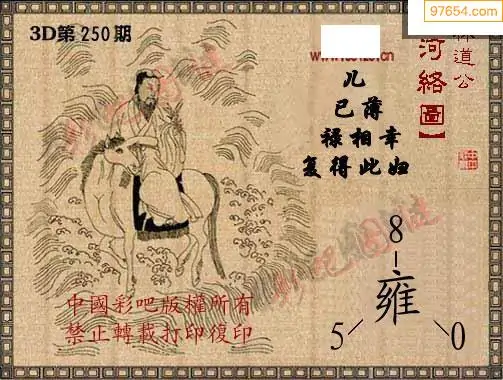 97654.com
3D第250期
林道公
河络圖】
儿
已薄
禄相幸
复得此妇
8
雍
5 0
中國彩吧版權所有
禁止轉載打印復印